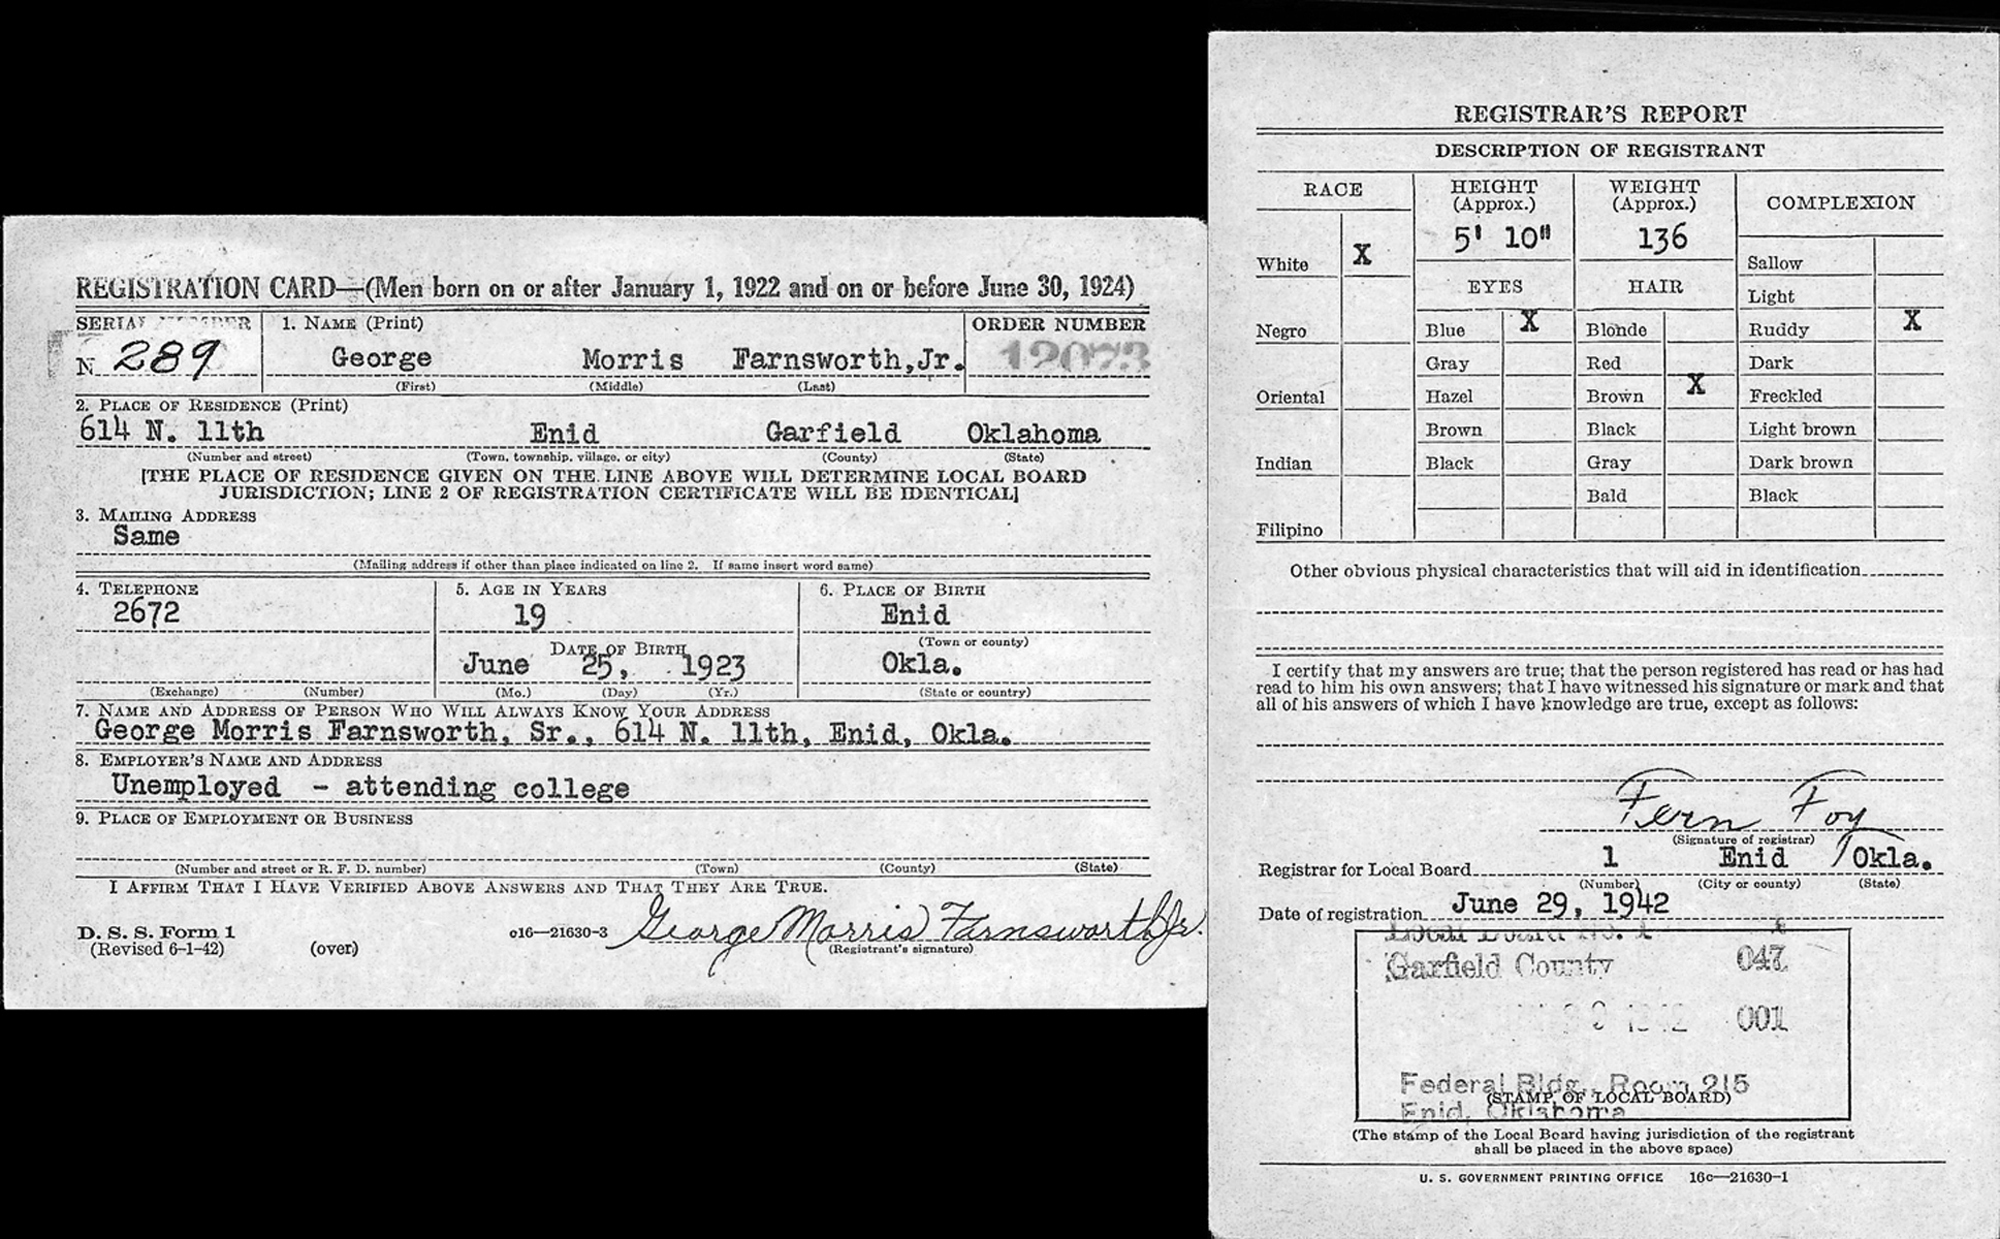 REGISTRATION CARD—(Men born on or after January 1, 1922 and on or before June 30, 1924)
SERIAL NUMBER
1. NAME (Print)
ORDER NUMBER
N 289
George Morris Farnsworth,Jr.
12073
(First) (Middle) (Last)
2. PLACE OF RESIDENCE (Print)
614 N. 11th Enid Garfield Oklahoma
(Number and street) (Town, township, village, or city) (County) (State)
[THE PLACE OF RESIDENCE GIVEN ON THE LINE ABOVE WILL DETERMINE LOCAL BOARD
JURISDICTION; LINE 2 OF REGISTRATION CERTIFICATE WILL BE IDENTICAL]
3. MAILING ADDRESS
Same
(Mailing address if other than place indicated on line 2. If same insert word same)
4. TELEPHONE
2672
(Exchange) (Number)
5. AGE IN YEARS
19
DATE OF BIRTH
June 25, 1923
(Mo.) (Day) (Yr.)
6. PLACE OF BIRTH
Enid
(Town or county)
Okla.
(State or country)
7. NAME AND ADDRESS OF PERSON WHO WILL ALWAYS KNOW YOUR ADDRESS
George Morris Farnsworth, Sr., 614 N. 11th, Enid, Okla.
8. EMPLOYER'S NAME AND ADDRESS
Unemployed - attending college
9. PLACE OF EMPLOYMENT OR BUSINESS
(Number and street or R. F. D. number) (Town) (County) (State)
I AFFIRM THAT I HAVE VERIFIED ABOVE ANSWERS AND THAT THEY ARE TRUE.
D. S. S. Form 1
(Revised 6-1-42) (over)
c16—21630-3
George Morris Farnsworth Jr.
(Registrant's signature)
REGISTRAR'S REPORT
DESCRIPTION OF REGISTRANT
RACE
White X
Negro
Oriental
Indian
Filipino
HEIGHT
(Approx.)
5' 10"
EYES
Blue X
Gray
Hazel
Brown
Black
WEIGHT
(Approx.)
136
HAIR
Blonde
Red
Brown X
Black
Gray
Bald
COMPLEXION
Sallow
Light
Ruddy X
Dark
Freckled
Light brown
Dark brown
Black
Other obvious physical characteristics that will aid in identification
I certify that my answers are true; that the person registered has read or has had
read to him his own answers; that I have witnessed his signature or mark and that
all of his answers of which I have knowledge are true, except as follows:
Fern Foy
(Signature of registrar)
Registrar for Local Board 1 Enid Okla.
(Number) (City or county) (State)
Date of registration June 29, 1942
Local Board No. 1
Garfield County 047
001
Federal Bldg., Room 215
(STAMP OF LOCAL BOARD)
Enid, Oklahoma
(The stamp of the Local Board having jurisdiction of the registrant
shall be placed in the above space)
U. S. GOVERNMENT PRINTING OFFICE 16c—21630-1